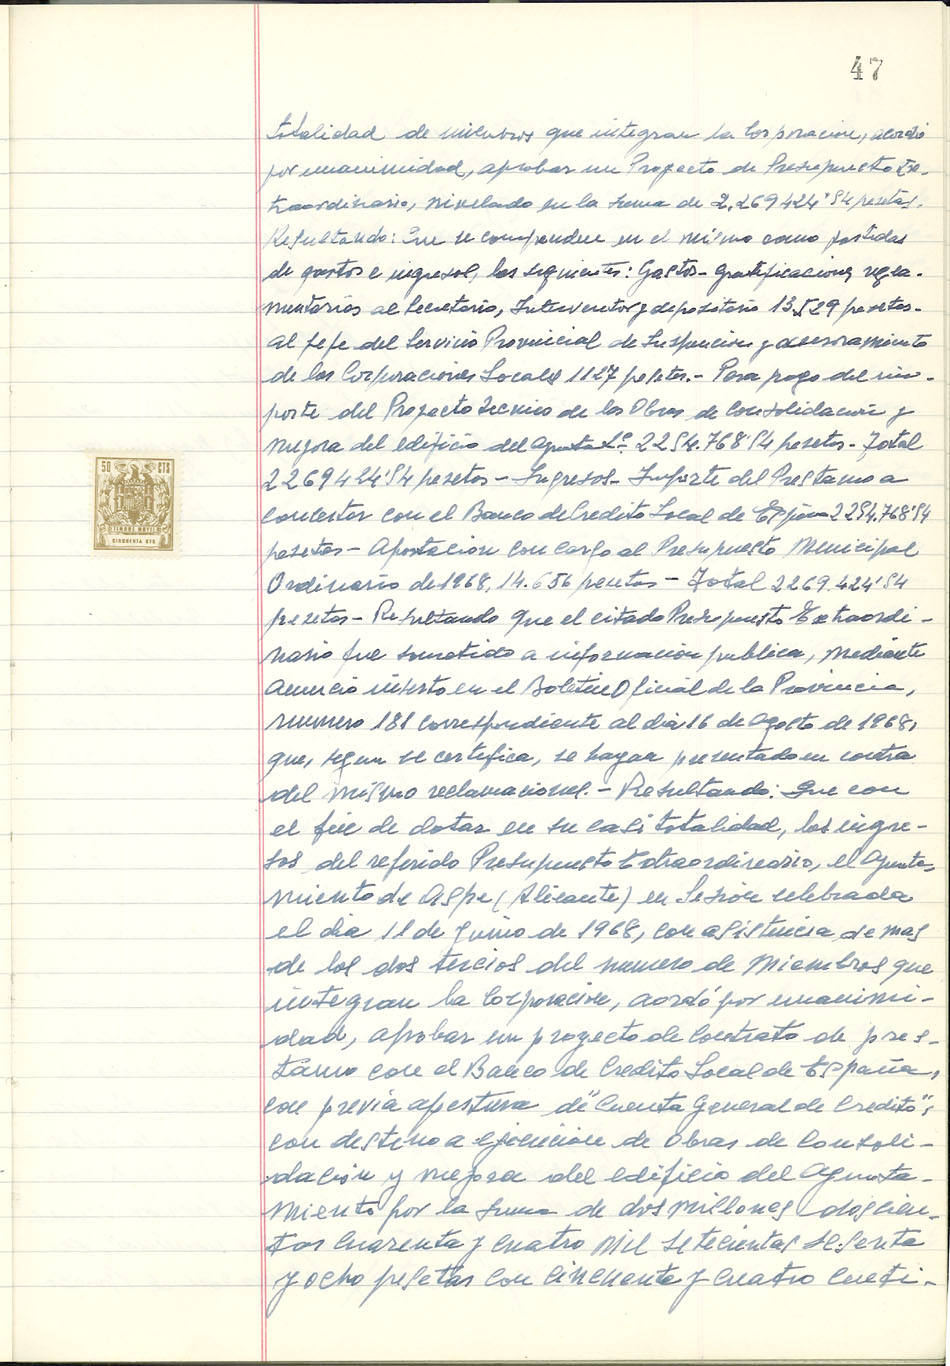 47
totalidad de miembros que integran la Corporacion, acordo
por unanimidad, aprobar un Proyecto de Presupuesto Ex-
traordinario, nivelado en la suma de 2.269424'54 pesetas.
Resultando: Que se comprenden en el mismo como partidas
de gastos e ingresos, las siguientes: Gastos- Gratificaciones regla-
mentarias al Secretario, Interventor y depositario 13.529 pesetas.-
al Jefe del Servicio Provincial de Inspeccion y asesoramiento
de las Corporaciones Locales 1127 pesetas.- Para pago del im-
porte del Proyecto Tecnico de las Obras de Consolidacion y
mejora del edificio del Ayunta Lº 2254.768'54 pesetas- Total
2269424'54 pesetas- Ingresos- Importe del Prestamo a
concertar con el Banco de Credito Local de España 2254.768'54
pesetas- Aportacion con cargo al Presupuesto Municipal
Ordinario de 1968, 14.656 pesetas - Total 2269.424'54
pesetas- Resultando que el citado Presupuesto Extraordi-
nario fue sometido a informacion publica, mediante
anuncio inserto en el Boletin Oficial de la Provincia,
numero 181 correspondiente al dia 16 de Agosto de 1968,
que, segun se certifica, se hayan presentado en contra
del mismo reclamaciones.- Resultando: Que con
el fin de dotar en su casi totalidad, los ingre-
sos del referido Presupuesto Extraordinario, el Ayunta-
miento de Aspe (Alicante) en Sesion celebrada
el dia 11 de Junio de 1968, con asistencia de mas
de los dos tercios del numero de Miembros que
integran la Corporacion, acordó por unanimi-
dad, aprobar un proyecto de Contrato de pres-
tamo con el Banco de Credito Local de España,
con previa apertura de "Cuenta General de Credito",
con destino a ejecucion de Obras de Consoli-
dación y mejora del edificio del Ayunta-
miento por la suma de dos millones doscien-
tos cuarenta y cuatro mil setecientas sesenta
y ocho pesetas con cincuenta y cuatro centi-
50 CTS
TIMBRE MOVIL
CINCUENTA CTS